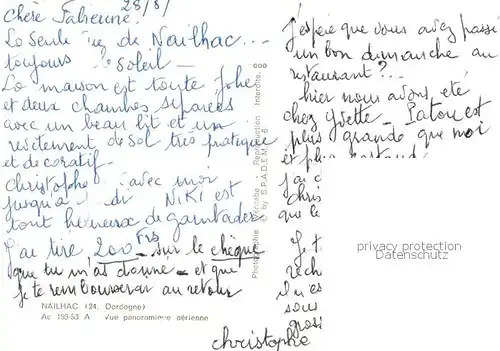 28/8/
Chère Fabienne.
La seule rue de Nailhac...
toujours le soleil —
La maison est toute jolie
et deux chambres séparées
avec un beau lit et un
revêtement de sol très pratique
et décoratif.
christophe avec moi
jusqu'à NIKI est
tout heureux de gambader
J'ai tiré 200 Frs sur le chèque
que tu m'as donné — et que
je te rembourserai au retour
NAILHAC (24. Dordogne)
Ac 193-53 A Vue panoramique aérienne
Photographie Véritable - Reproduction Interdite.
© by S.P.A.D.E.M.
J'espère que vous avez passé
un bon dimanche au
restaurant ?...
hier nous avons été
chez Yvette — Patou est
plus grande que moi
et plus
J'ai
chris
que le
Je t
rech
il y es
sous
gross
christophe
privacy protection
Datenschutz